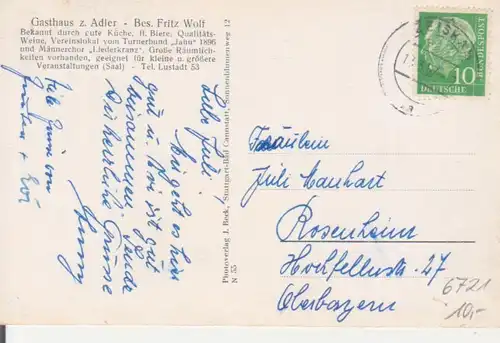 Gasthaus z. Adler - Bes. Fritz Wolf
Bekannt durch gute Küche, ff. Biere, Qualitäts-
Weine, Vereinslokal vom Turnerbund „Jahn" 1896
und Männerchor „Liederkranz". Große Räumlich-
keiten vorhanden, geeignet für kleine u. größere
Veranstaltungen (Saal) - Tel. Lustadt 53
Liebe Juli!
Mir geht es hier
gut u. wir ist gut
beisammen. Sende
Dir herzliche Grüsse
Viele Grüsse von
Photoverlag J. Beck, Stuttgart-Bad Cannstatt, Sonnenblumenweg 12
N 55
DEUTSCHE
BUNDESPOST
10
Fräulein
Juli Manhart
Rosenheim
Hochfellnstr. 27
Oberbayern
6721
10,-